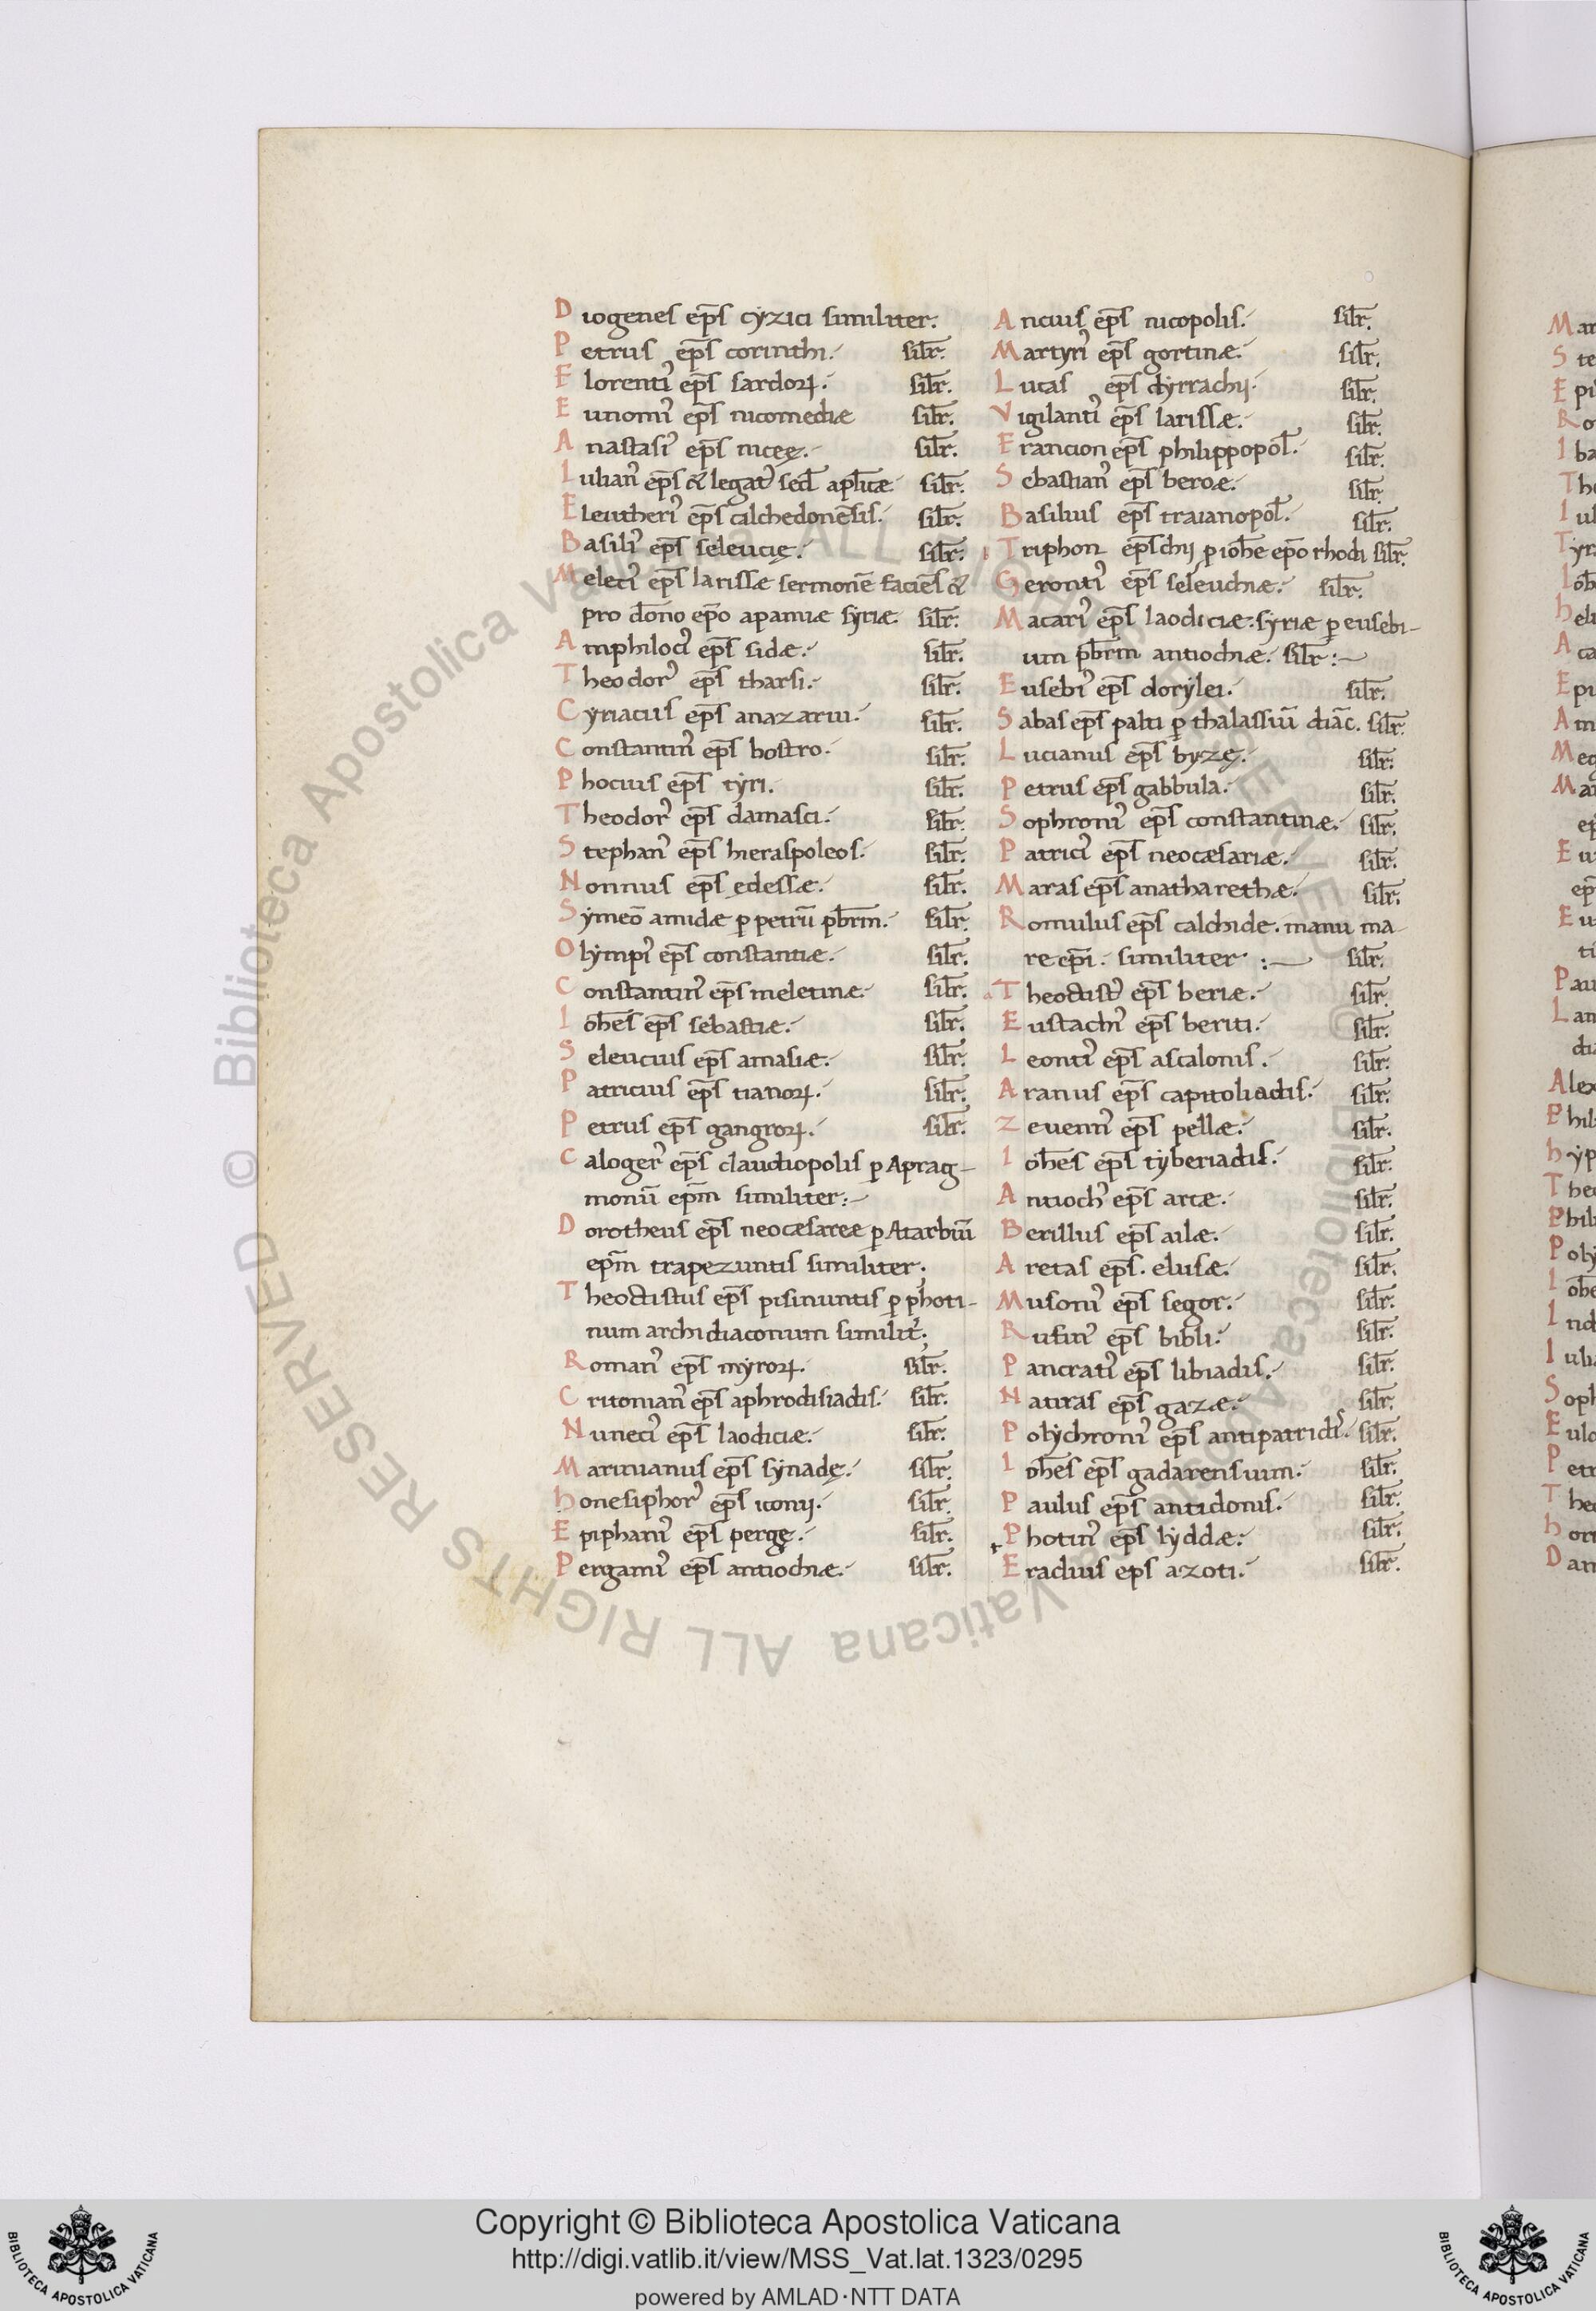 Diogenes ep̅s cẏzici similiter.
Petrus ep̅s corinthi. sil̅r.
Florenti᾽ ep̅s sardoꝝ. sil̅r.
Eunomi᾽ ep̅s nicomediæ sil̅r.
Anastasi᾽ ep̅s niceę. sil̅r.
Iulian᾽ ep̅s & legat᾽ sed̅ apl̅icæ sil̅r.
Eleutheri᾽ ep̅s calchedone̅sis. sil̅r.
Basili᾽ ep̅s seleucię. sil̅r.
Meleti᾽ ep̅s larissæ sermone̅ facie̅s &
pro dom̅no ep̅o apamiæ sẏriæ. sil̅r.
Amphiloci᾽ ep̅s sidæ. sil̅r.
Theodor᾽ ep̅s tharsi. sil̅r.
Cẏriacus ep̅s anazarui. sil̅r.
Constantin᾽ ep̅s bostro. sil̅r.
Phocius ep̅s tẏri. sil̅r.
Theodor᾽ ep̅s damasci. sil̅r.
Stephan᾽ ep̅s hieraspoleos. sil̅r.
Nonnus ep̅s edessæ. sil̅r.
Sẏmeo̅ amidæ ꝑ petru̅ pb̅rm. sil̅r.
Olẏmpi᾽ ep̅s constantiæ. sil̅r.
Constantin᾽ ep̅s meletinæ. sil̅r.
Ioh̅es ep̅s sebastiæ. sil̅r.
Seleucius ep̅s amasiæ. sil̅r.
Patricius ep̅s tianoꝝ. sil̅r.
Petrus ep̅s gangroꝝ. sil̅r.
Caloger᾽ ep̅s claudiopolis ꝑ Aprag-
moniu̅ ep̅m similiter:-
Dorotheus ep̅s neocæsareæ ꝑ Atarbiu̅
ep̅m trapezuntis similiter;
Theodistus ep̅s pisinuntis ꝑ photi-
num archidiaconum similit᾽;
Roman᾽ ep̅s mẏroꝝ. sil̅r.
Critonian᾽ ep̅s aphrodisiadis. sil̅r.
Nuneci᾽ ep̅s laodiciæ. sil̅r.
Marinianus ep̅s sẏnadę. sil̅r.
honesiphor᾽ ep̅s iconij. sil̅r.
Epiphani᾽ ep̅s pergę. sil̅r.
Pergami᾽ ep̅s antiochiæ. sil̅r.
Ancius ep̅s nicopolis. sil̅r.
Martyri᾽ ep̅s gortinæ. sil̅r.
Lucas ep̅s dẏrrachij. sil̅r.
Vigilanti᾽ ep̅s larissæ. sil̅r.
Francion ep̅s philippopol̅. sil̅r.
Sebastian᾽ ep̅s beroæ. sil̅r.
Basilius ep̅s traianopol̅. sil̅r.
Triphon ep̅s chij ꝑ ioh̅e ep̅o rhodi sil̅r.
Geronti᾽ ep̅s seleuchiæ. sil̅r.
Macari᾽ ep̅s laodiciæ. sẏriæ ꝑ eusebi-
um pb̅rm antiochiæ. sil̅r:-
Eusebi᾽ ep̅s dorẏlei. sil̅r.
Sabas ep̅s palti ꝑ thalassiu̅ dia̅c. sil̅r.
Lucianus ep̅s byzę. sil̅r.
Petrus ep̅s gabbula. sil̅r.
Sophroni᾽ ep̅s constantinæ. sil̅r.
Patrici᾽ ep̅s neocæsariæ. sil̅r.
Maras ep̅s anatharethæ. sil̅r.
Romulus ep̅s calchide. manu ma
re cp̅i. similiter :- sil̅r.
Theodist᾽ ep̅s beriæ. sil̅r.
Eustachi᾽ ep̅s beriti. sil̅r.
Leonti᾽ ep̅s ascalonis. sil̅r.
Aranus ep̅s capitoliadis. sil̅r.
Zevenn᾽ ep̅s pellæ. sil̅r.
Ioh̅es ep̅s tẏberiadis. sil̅r.
Antioch᾽ ep̅s arcæ. sil̅r.
Berillus ep̅s ailæ. sil̅r.
Aretas ep̅s. elusæ. sil̅r.
Musoni᾽ ep̅s segor. sil̅r.
Rufin᾽ ep̅s bibli. sil̅r.
Pancrati᾽ ep̅s libiadis. sil̅r.
Natiras ep̅s gazæ. sil̅r.
Polẏchroni᾽ ep̅s antipatridis. sil̅r.
Ioh̅es ep̅s gadarensium. sil̅r.
Paulus ep̅s antidonis. sil̅r.
Photin᾽ ep̅s lẏddæ. sil̅r.
Eraclius eps azoti. sil̅r.
© Biblioteca Apostolica Vaticana ALL RIGHTS RESERVED
Copyright © Biblioteca Apostolica Vaticana
http://digi.vatlib.it/view/MSS_Vat.lat.1323/0295
powered by AMLAD·NTT DATA
BIBLIOTECA APOSTOLICA VATICANA
BIBLIOTECA APOSTOLICA VATICANA